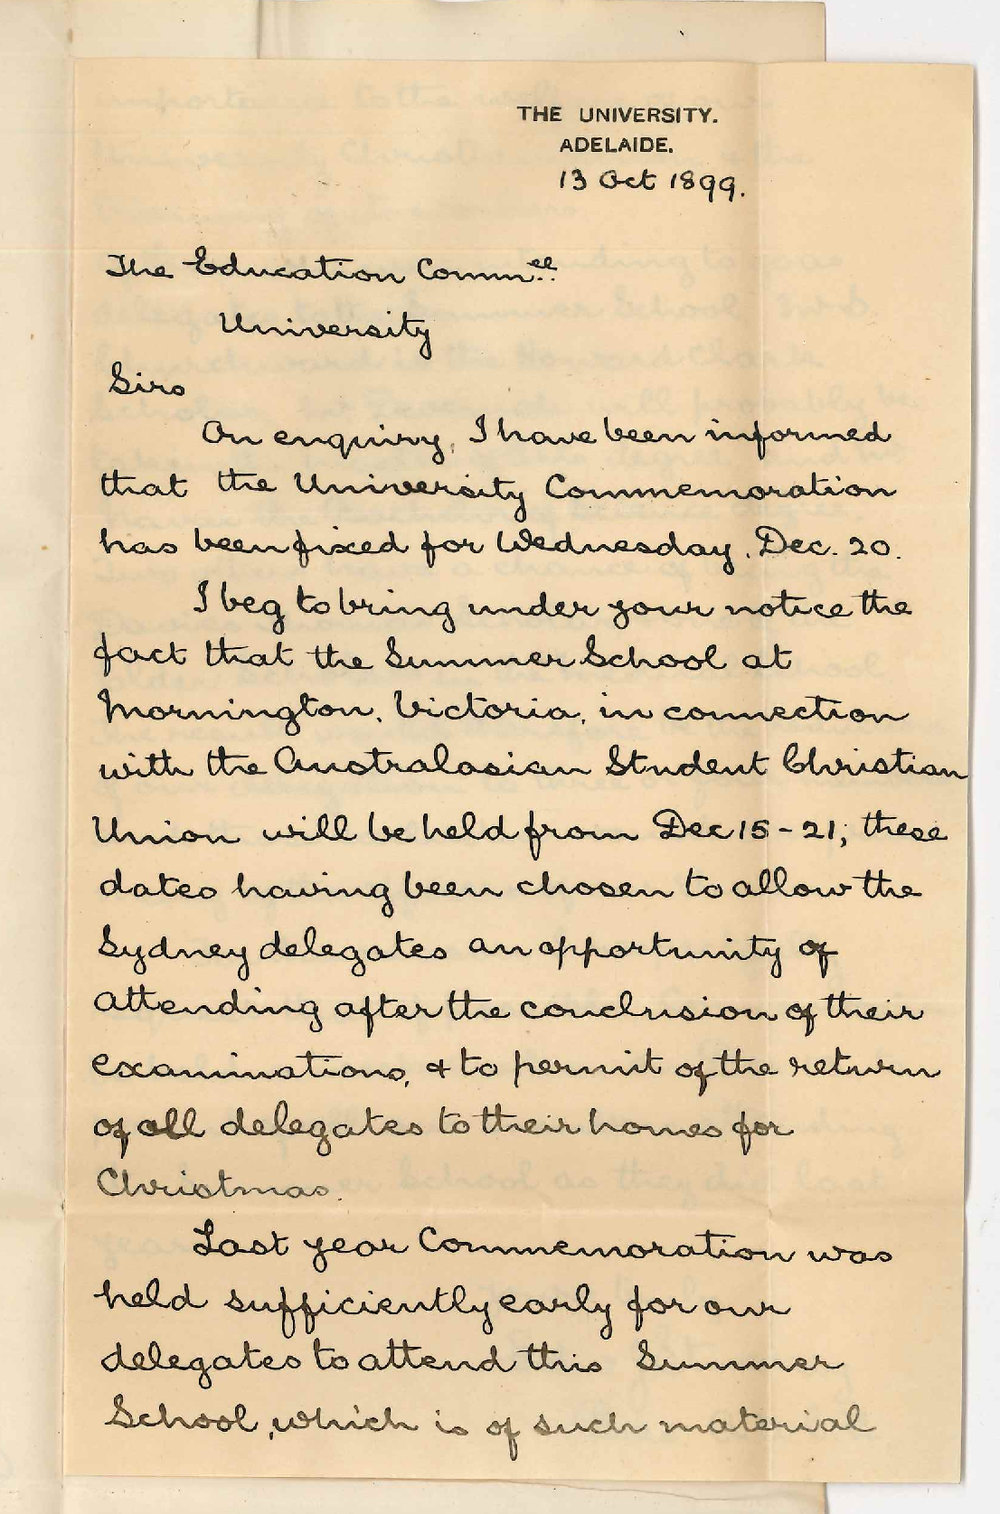 THE UNIVERSITY.
ADELAIDE.
13 Oct 1899.
The Education Commee.
University
Sirs
On enquiry, I have been informed
that the University Commemoration
has been fixed for Wednesday, Dec. 20.
I beg to bring under your notice the
fact that the Summer School at
Mornington, Victoria, in connection
with the Australasian Student Christian
Union will be held from Dec 15 - 21; these
dates having been chosen to allow the
Sydney delegates an opportunity of
attending after the conclusion of their
examinations, & to permit of the return
of all delegates to their homes for
Christmas.
Last year Commemoration was
held sufficiently early for our
delegates to attend this Summer
School, which is of such material